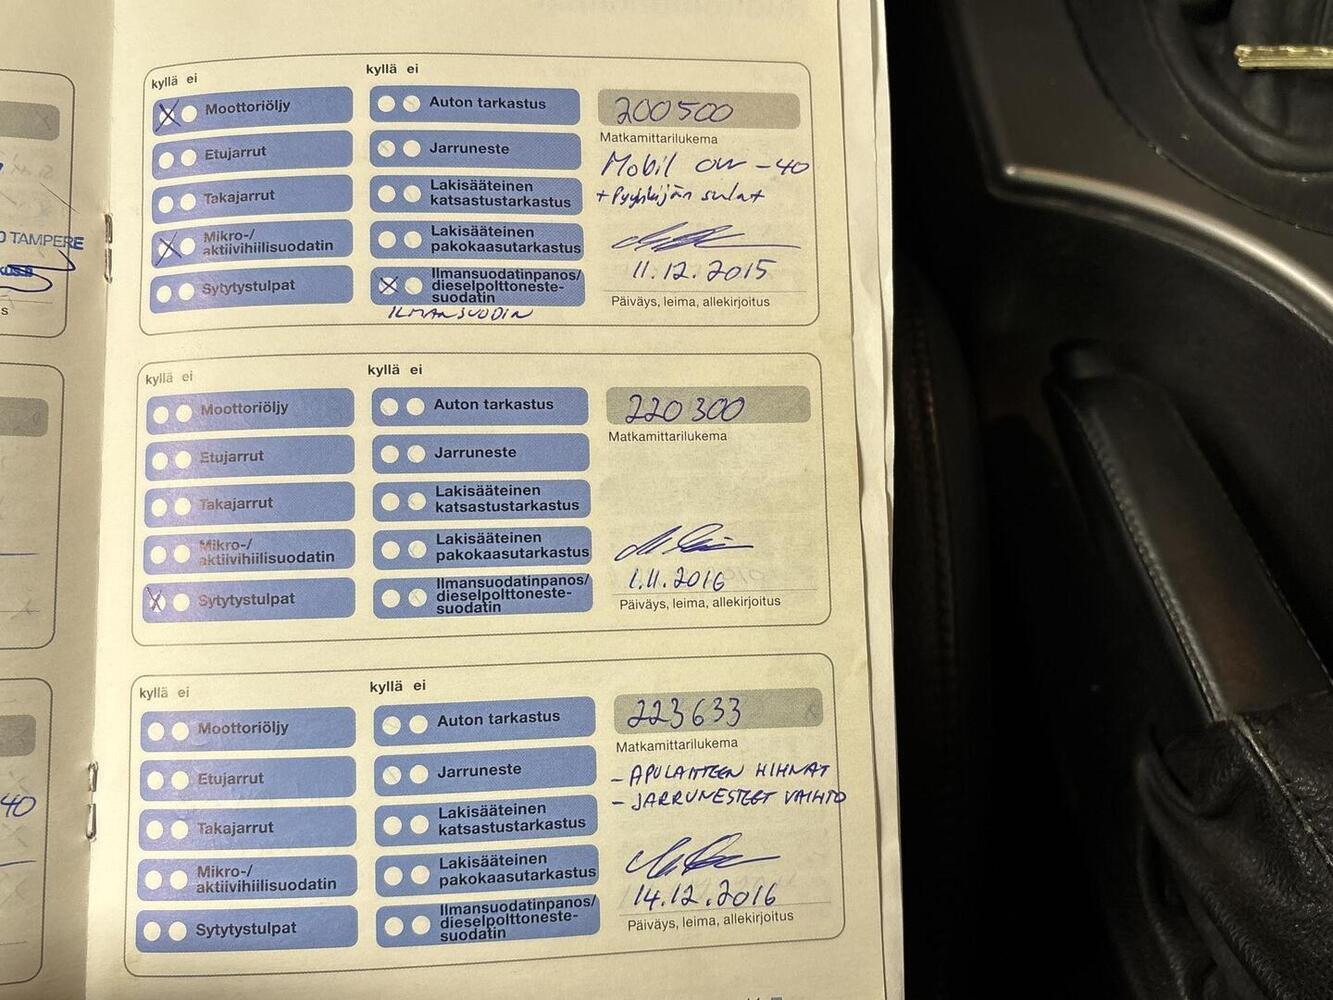 kyllä ei
kyllä ei
Moottoriöljy
Auton tarkastus
200500
Etujarrut
Jarruneste
Matkamittarilukema
Mobil 0W-40
Takajarrut
Lakisääteinen
katsastustarkastus
+ Pyyhkijän sulat
Mikro-/
aktiivihiilisuodatin
Lakisääteinen
pakokaasutarkastus
Sytytystulpat
Ilmansuodatinpanos/
dieselpolttoneste-
suodatin
11.12.2015
ILMANSUODIN
Päiväys, leima, allekirjoitus
kyllä ei
kyllä ei
Moottoriöljy
Auton tarkastus
220 300
Etujarrut
Jarruneste
Matkamittarilukema
Takajarrut
Lakisääteinen
katsastustarkastus
Mikro-/
aktiivihiilisuodatin
Lakisääteinen
pakokaasutarkastus
Sytytystulpat
Ilmansuodatinpanos/
dieselpolttoneste-
suodatin
1.11.2016
Päiväys, leima, allekirjoitus
kyllä ei
kyllä ei
Moottoriöljy
Auton tarkastus
223633
Etujarrut
Jarruneste
Matkamittarilukema
- APULAITTEEN HIHNAT
- JARRUNESTEET VAIHTO
Takajarrut
Lakisääteinen
katsastustarkastus
Mikro-/
aktiivihiilisuodatin
Lakisääteinen
pakokaasutarkastus
Sytytystulpat
Ilmansuodatinpanos/
dieselpolttoneste-
suodatin
14.12.2016
Päiväys, leima, allekirjoitus
TAMPERE
40